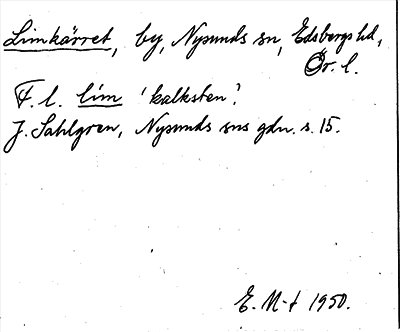 Limkärret, by, Nysunds sn, Edsbergs hd,
Ör. l.
F. l. lim 'kalksten'.
J. Sahlgren, Nysunds sns gdn. s. 15.
E. M-t 1950.